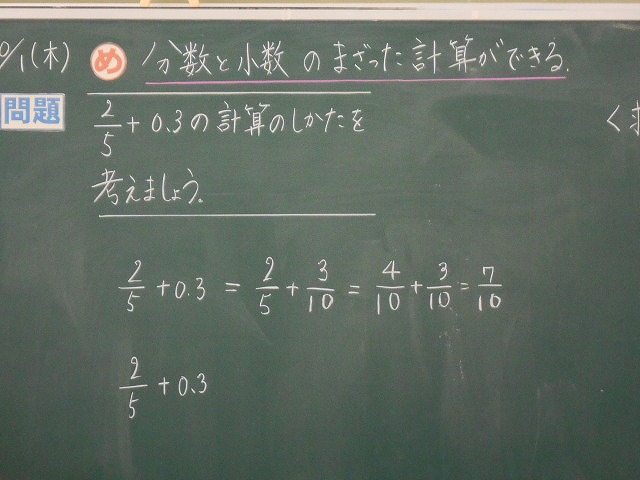 0/1(木) め 分数と小数のまざった計算ができる.
問題
2/5 + 0.3の計算のしかたを
考えましょう.
2/5 + 0.3 = 2/5 + 3/10 = 4/10 + 3/10 = 7/10
2/5 + 0.3